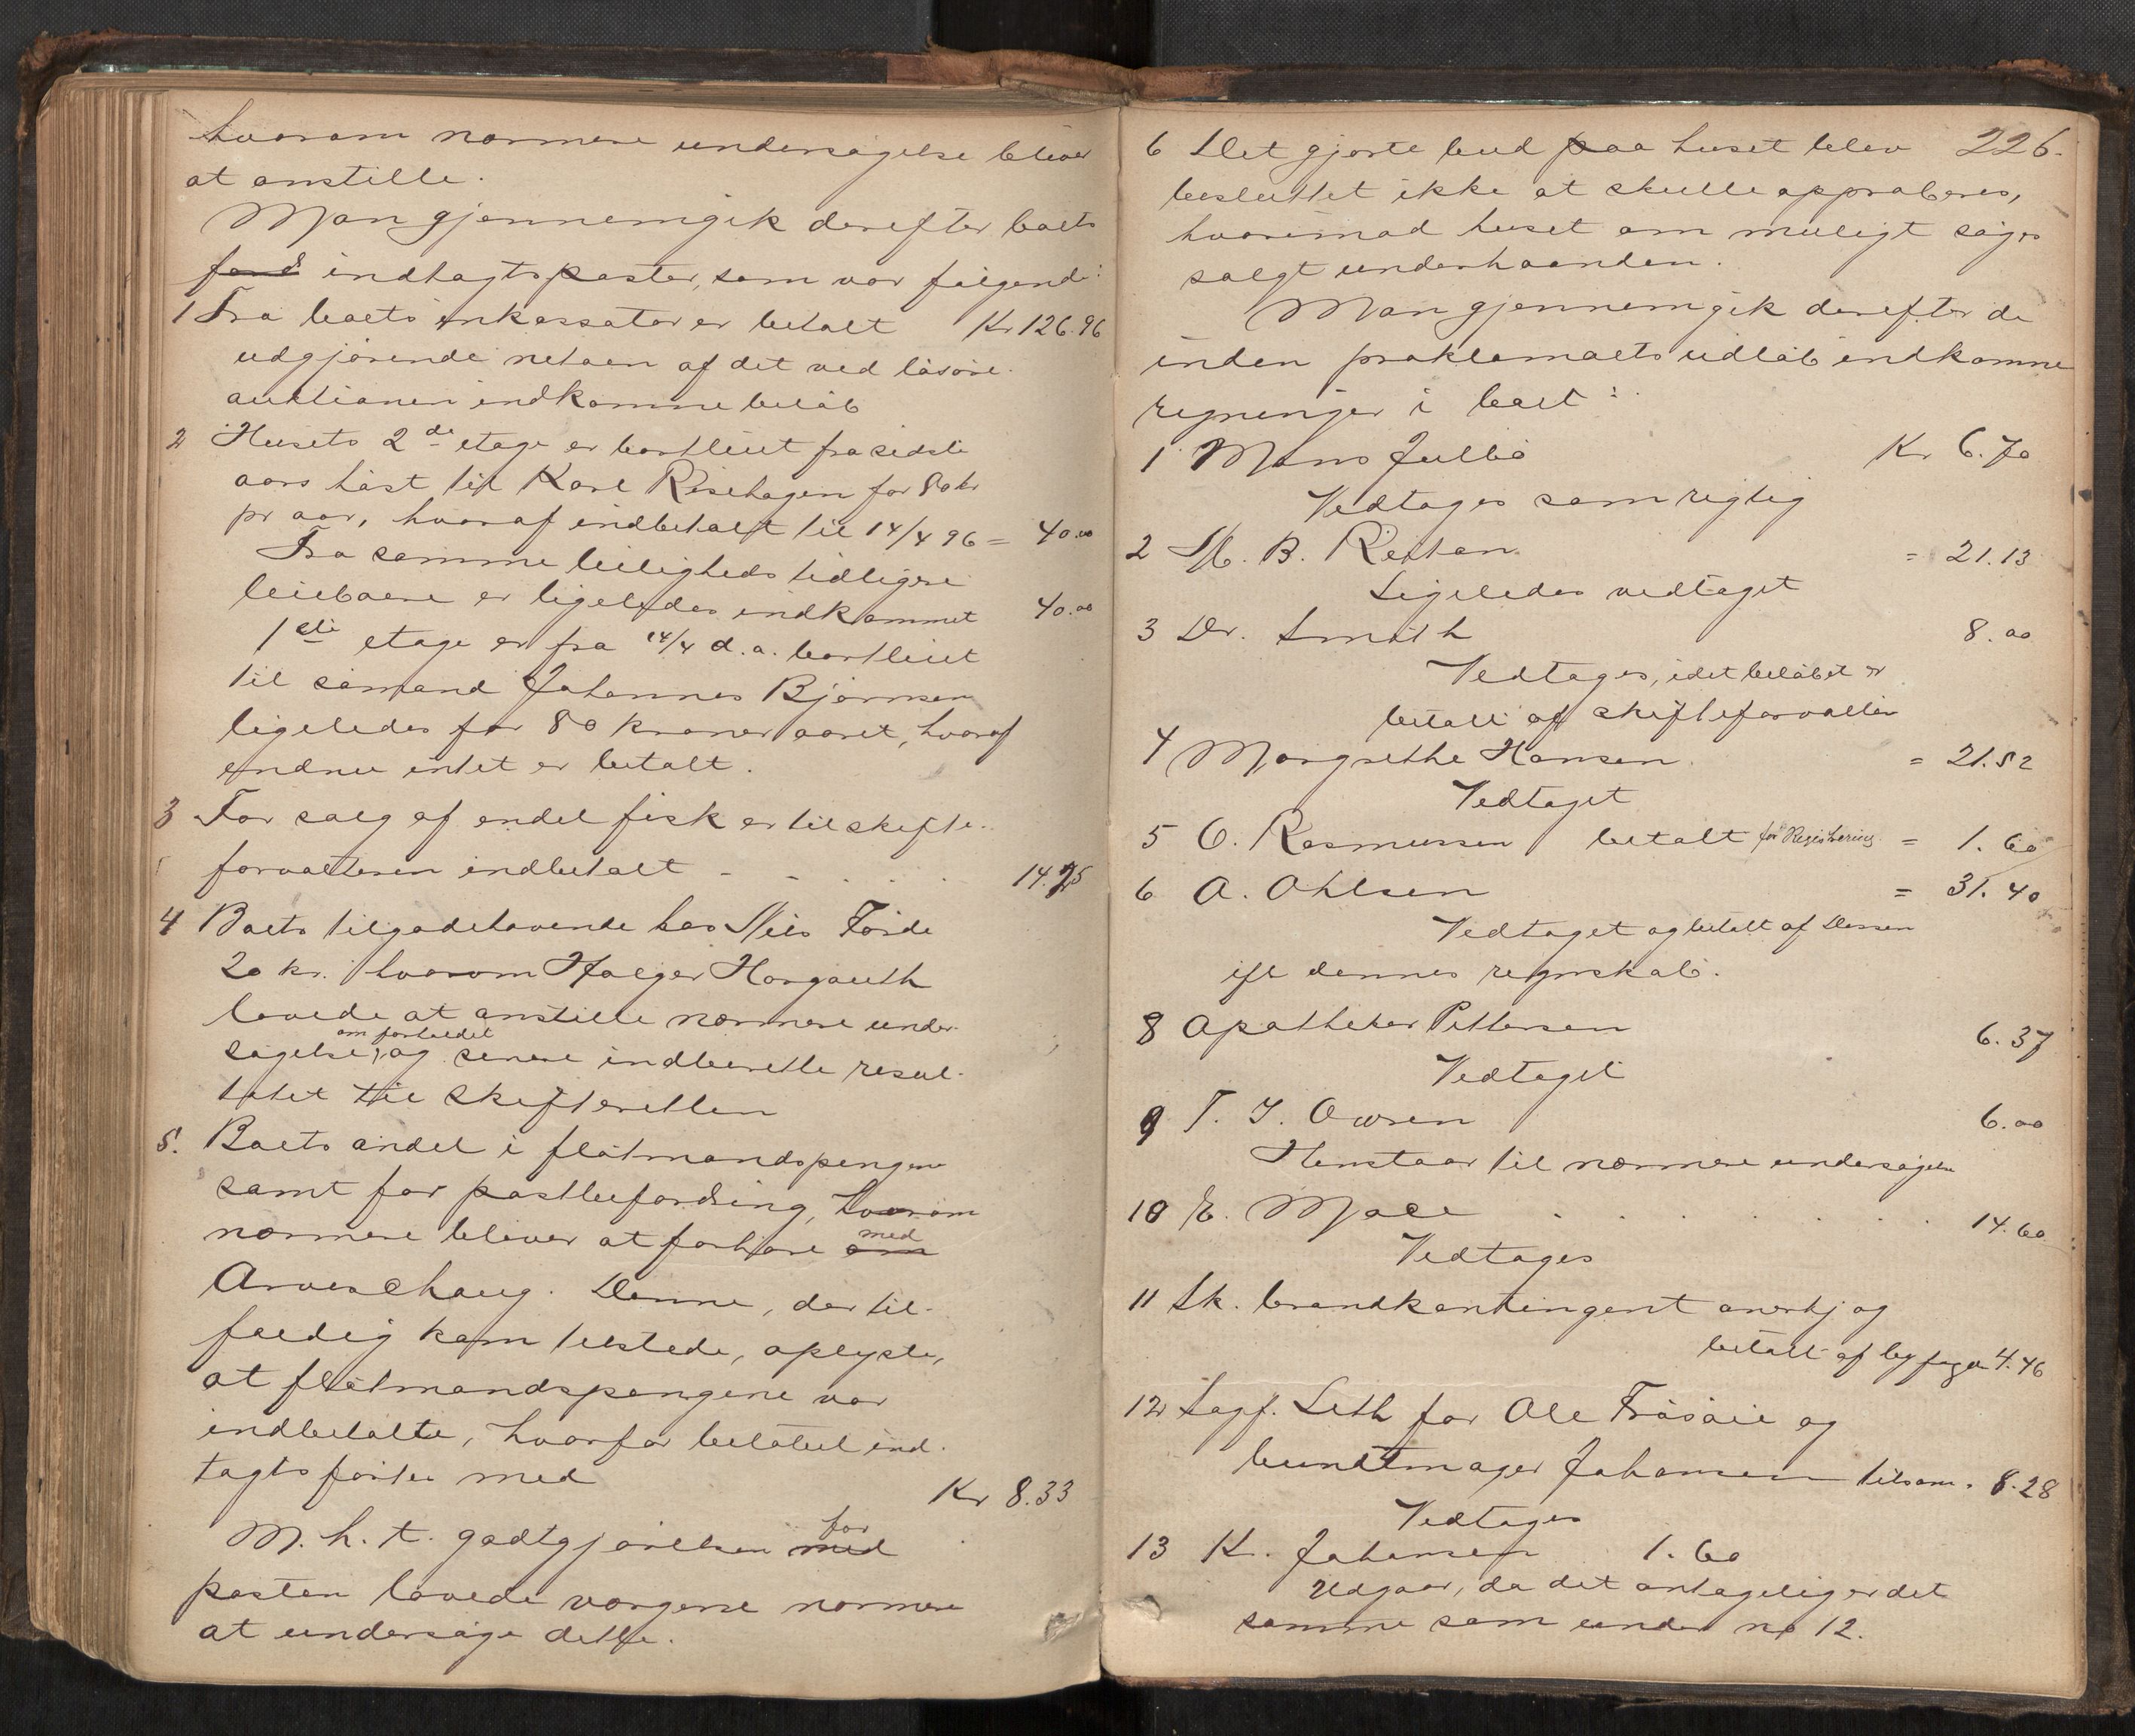 hvorom nærmere undersøgelse bliver
at anstille.
Man gjennemgik derefter boets
ford indtagtsposter, som var følgende:
1 Fra boets inkassator er betalt Kr 126.96
udgjørende netaen af det ved løsøre-
auktionen indkomne beløb
2 Husets 2de etage er bortleiet fra sidste
aars høst til Karl Risehagen for 80 kr
pr aar, hvoraf indbetalt til 14/4 96 = 40.00
Fra samme leiligheds tidligere
leieboere er ligeledes indkommet 40.00
1ste etage er fra 14/4 d.a. bortleiet
til sømand Johannes Bjørnsen
ligeledes for 80 kroner aaret, hvoraf
endnu intet er betalt.
3 For salg af endel fisk er til skifte-
forvalteren indbetalt - - . . . . 14.25
4 Boets tilgodehavende hos Nils Førde
20 kr. hvorom Holger Horgauth
lovede at anstille nærmere under-
om forholdet
søgelse, og senere indberette resul-
tatet til skifteretten
5. Boets andel i flötmandspengene
samt for postbefordring, hvorom
med
nærmere bliver at forhøre om
Arveschaug. Denne, der til-
fældig kom tilstede, oplyste,
at flötmandspengene var
indbetalte, hvorfor beløbet ind-
tagtsføres med Kr 8.33
for
M. h. t. godtgjørelsen med
posten lovede vergerne nærmere
at undersøge dette.
226.
6 Det gjorte bud paa huset blev
besluttet ikke at skulle approberes,
hvorimod huset om muligt søges
solgt underhaanden.
Man gjennemgik derefter de
inden proklamaets udløb indkomne
regninger i boet:
1 Mons Julbø Kr 6.70
Vedtages som rigtig
2 M. B. Restan = 21.13
Ligeledes vedtaget
3 Dr. Smith 8.00
Vedtages, idet beløbet er
betalt af skifteforvalter
4 Margrethe Hansen = 21.52
Vedtaget
5 O. Rasmussen betalt for Registrering = 1.60
6 A. Ohlsen = 31.40
Vedtaget og betalt af
ifl dennes regnskab.
8 Apotheker Pettersen 6.37
Vedtaget
9 T. J. Owren 6.00
Henstaar til nærmere undersøgelse
10 E. Moe . . . . . . 14.60
Vedtages
11 Sk. brandkontingent anerkj og
betalt af 4.46
12 Sagf. Leth for Ole Frøsøie og
buntmager Johansen tilsam. 8.28
Vedtages
13 K. Johansen 1.60
Udgaar, da det antagelig er det
samme som under no 12.